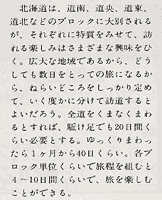 北海道は、道南、道央、道東、
道北などのブロックに大別される
が、それぞれに特質をみせて、訪
れる楽しみはさまざまな興味をひ
く。広大な地域であるから、どう
しても数日をとっての旅になるか
ら、ねらいどころをしっかり定め
て、いく度かに分けて訪道すると
よいだろう。全道をくまなくまわ
るとすれば、駆け足でも20日間く
らい必要とする。ゆっくりまわっ
たら1ヶ月から40日くらい。各ブ
ロック単位くらいで旅程を組むと
4～10日間くらいで、旅を楽しむ
ことができる。